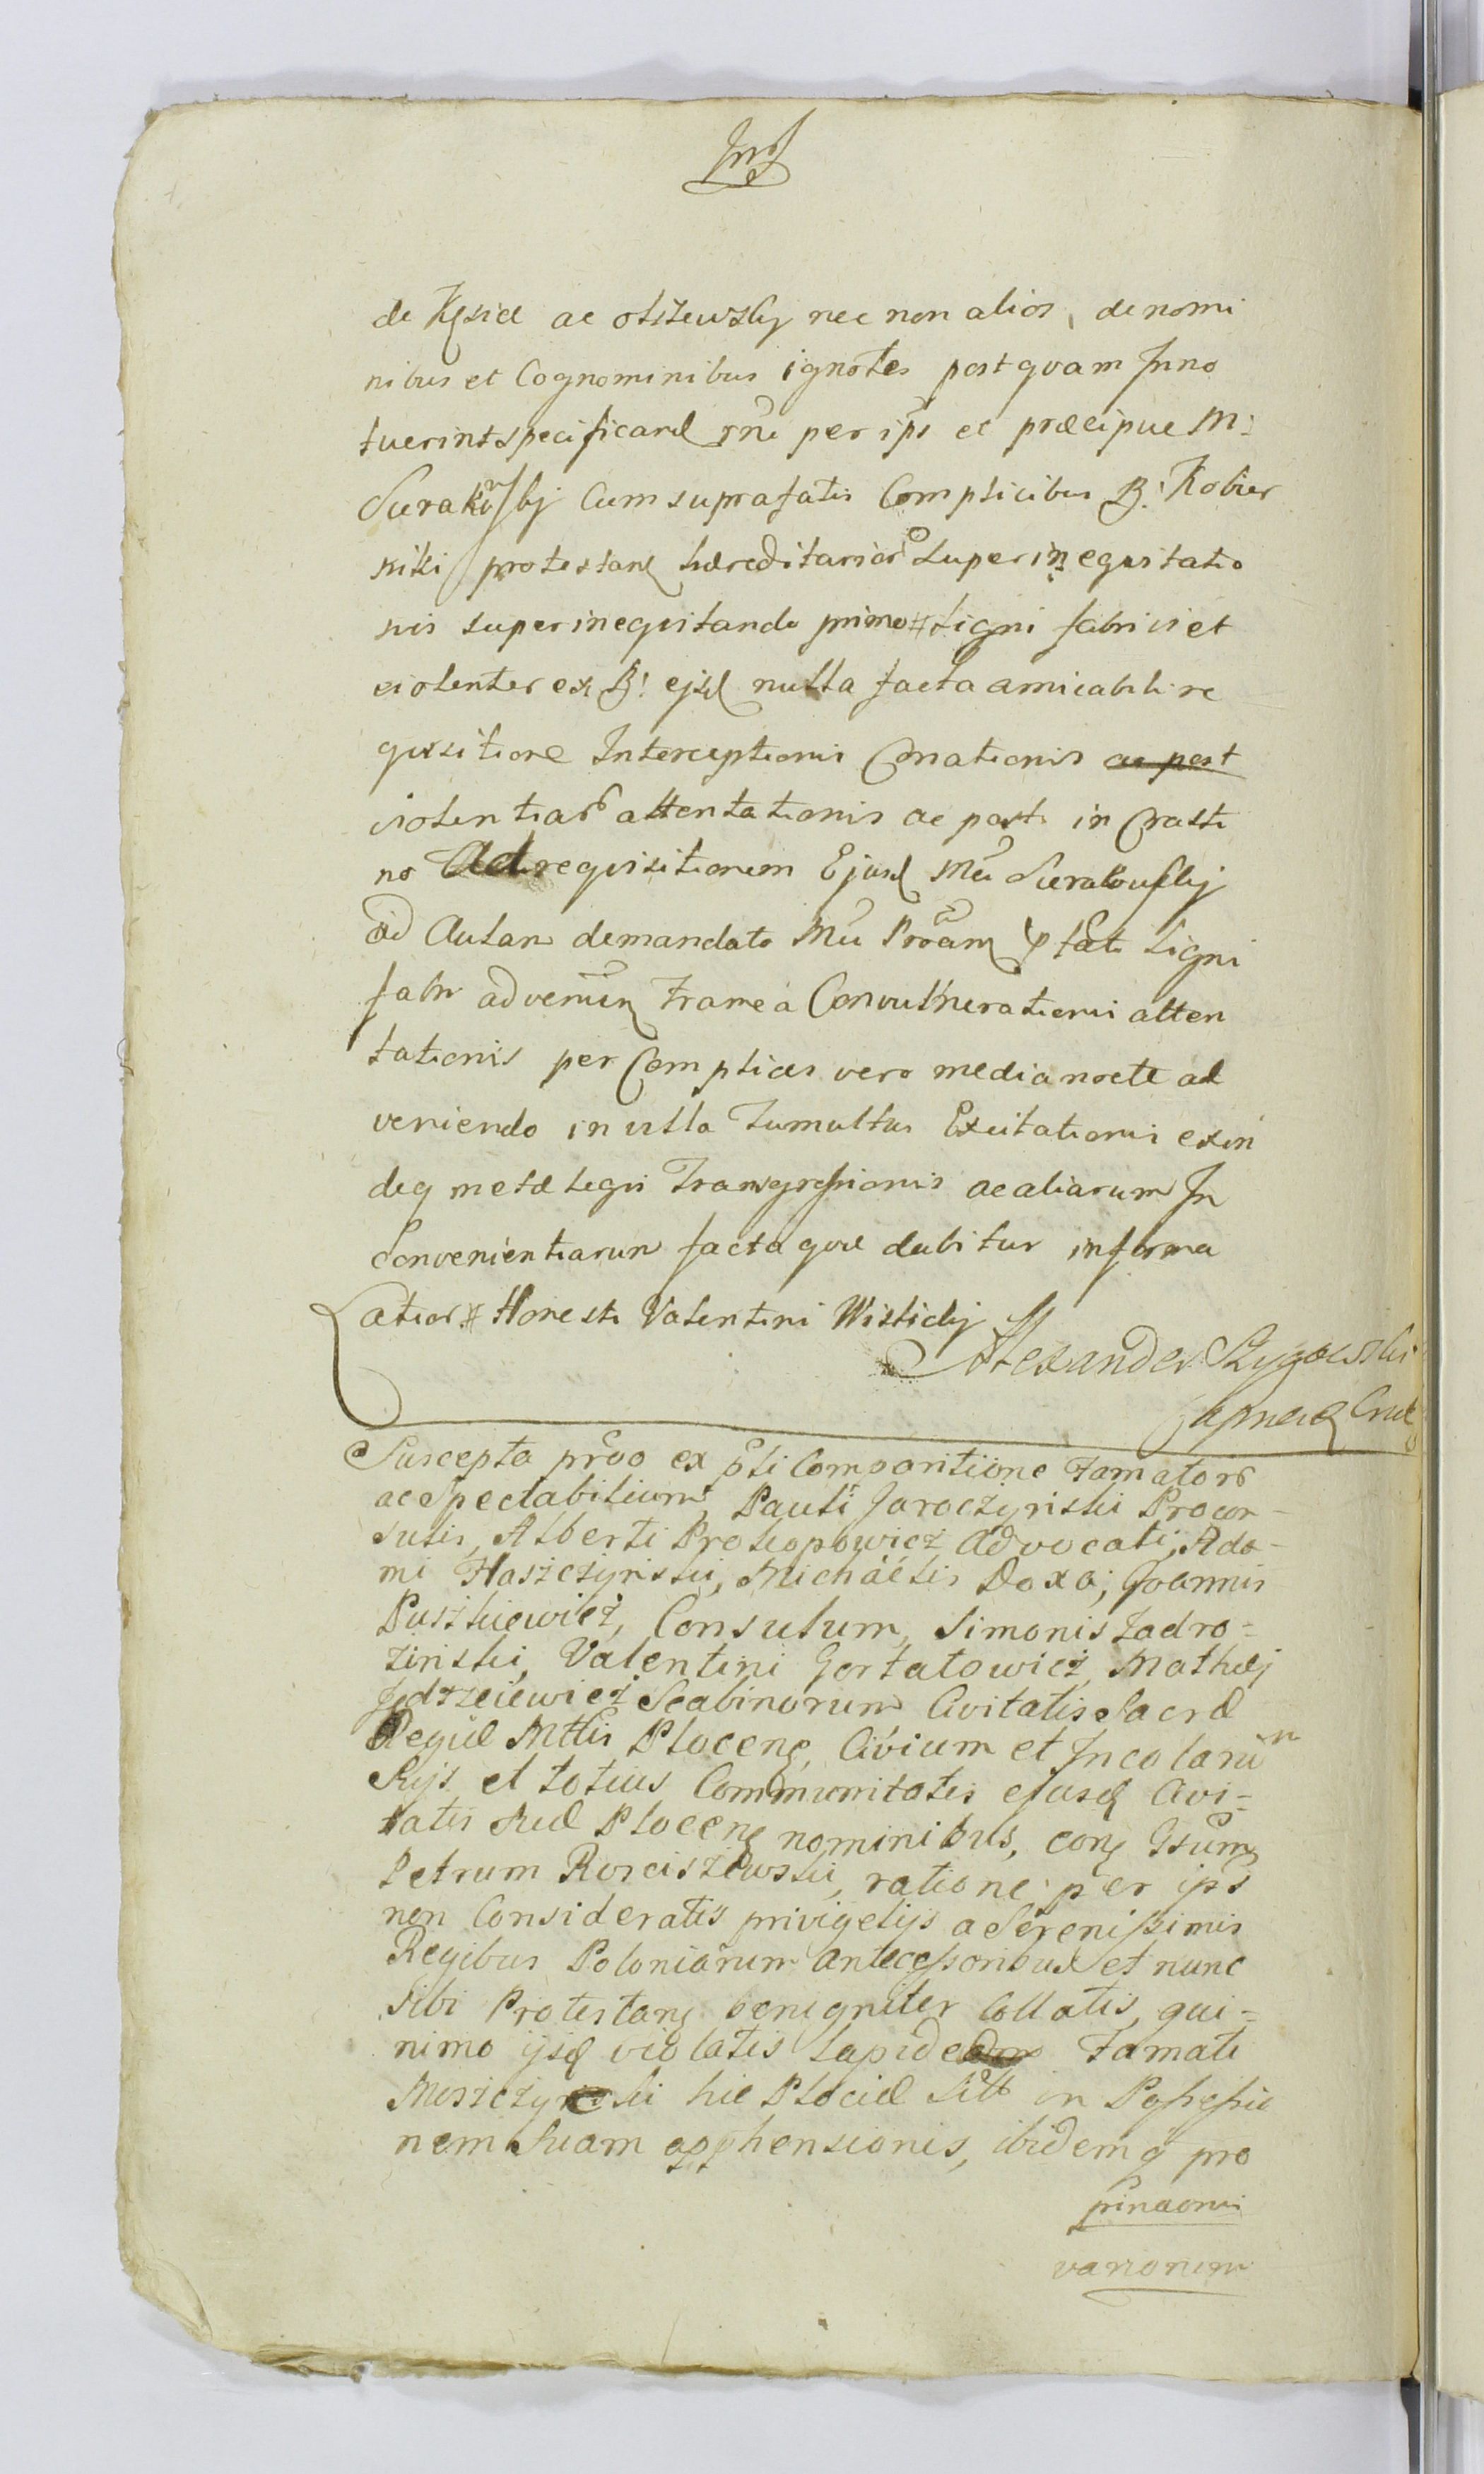 de Kęsice ac olszewsky nec non alios, denomi
nibus et Cognominibus ignotes postqvam Inno
tuerint specificand rne per ips et præcipue M:
Sierakowsky Cum suprafatis Complicibus B: Kobier
niki protestan hæreditarior Superinequitatio
nis superinequitando primo # Ligni fabri vi et
violenter ex B: ejsd nulla facta amicabili re
qvisitione Interceptionis Conationis ac post
violentiar attentationis ac post in Crasti
no Ad reqvisitionem Ejusd Mci Sierakowsky
ad Aulam demandato Mci Proan p fati Ligni
fabr advenien Framea Convulnerationis atten
tationis per Complices vero media nocte ad
veniendo in villa Tumultus Excitationis exin
deq metæ legis Transgressionis ac aliarum In
Convenientiarum facta qvæ dabitur informa
ation # Honesti Valentini Wislicky
Alexander Szygowski
Suscepta prvo ex pti Comparitione Famator
ac Spectabilium, Pauli Jaroczynski Procon-
sulis, Alberti Prokopowicz Advocati, Ada-
mi Haszczynski, Michäelis Doxa, Joannis
Puszkiewicz, Consulum, Simonis Zadro-
zinski, Valentini Gorlatowicz, Mathæj
Jędrzeiewicz Scabinorum Civitatis Sacræ
Regiæ Mttis Plocen, Civium et Incolarum
Suis, et totius Communitatis ejusd Civi-
tatis Suæ Plocen nominibus, con Gsum
Petrum Rosciszewski, ratione per ips
non Consideratis privigelijs a Serenissimis
Regibus Poloniarum antecessoribus et nunc
Sibi Protestan benigniter Collatis, qui-
nimo ijsd violatis Lapidea Famati
Moszczynski hic Plociæ sitt in Possessio
nem Suam apphensionis, ibidemq pro
pinaonis
varionum